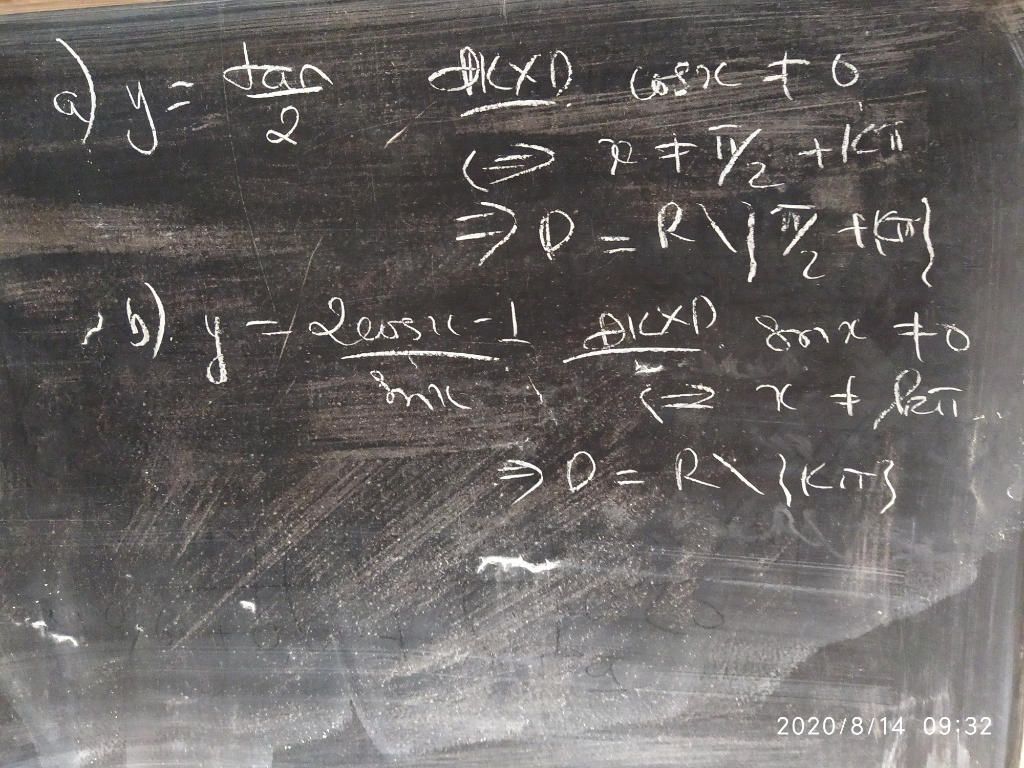 a) y = tan/2 ĐKXĐ cosx ≠ 0
<=> x ≠ π/2 + kπ
=> D = R \ {π/2 + kπ}
b). y = 2cosx - 1/sinx ĐKXĐ sinx ≠ 0
<=> x ≠ kπ
=> D = R \ {kπ}
2020/8/14 09:32